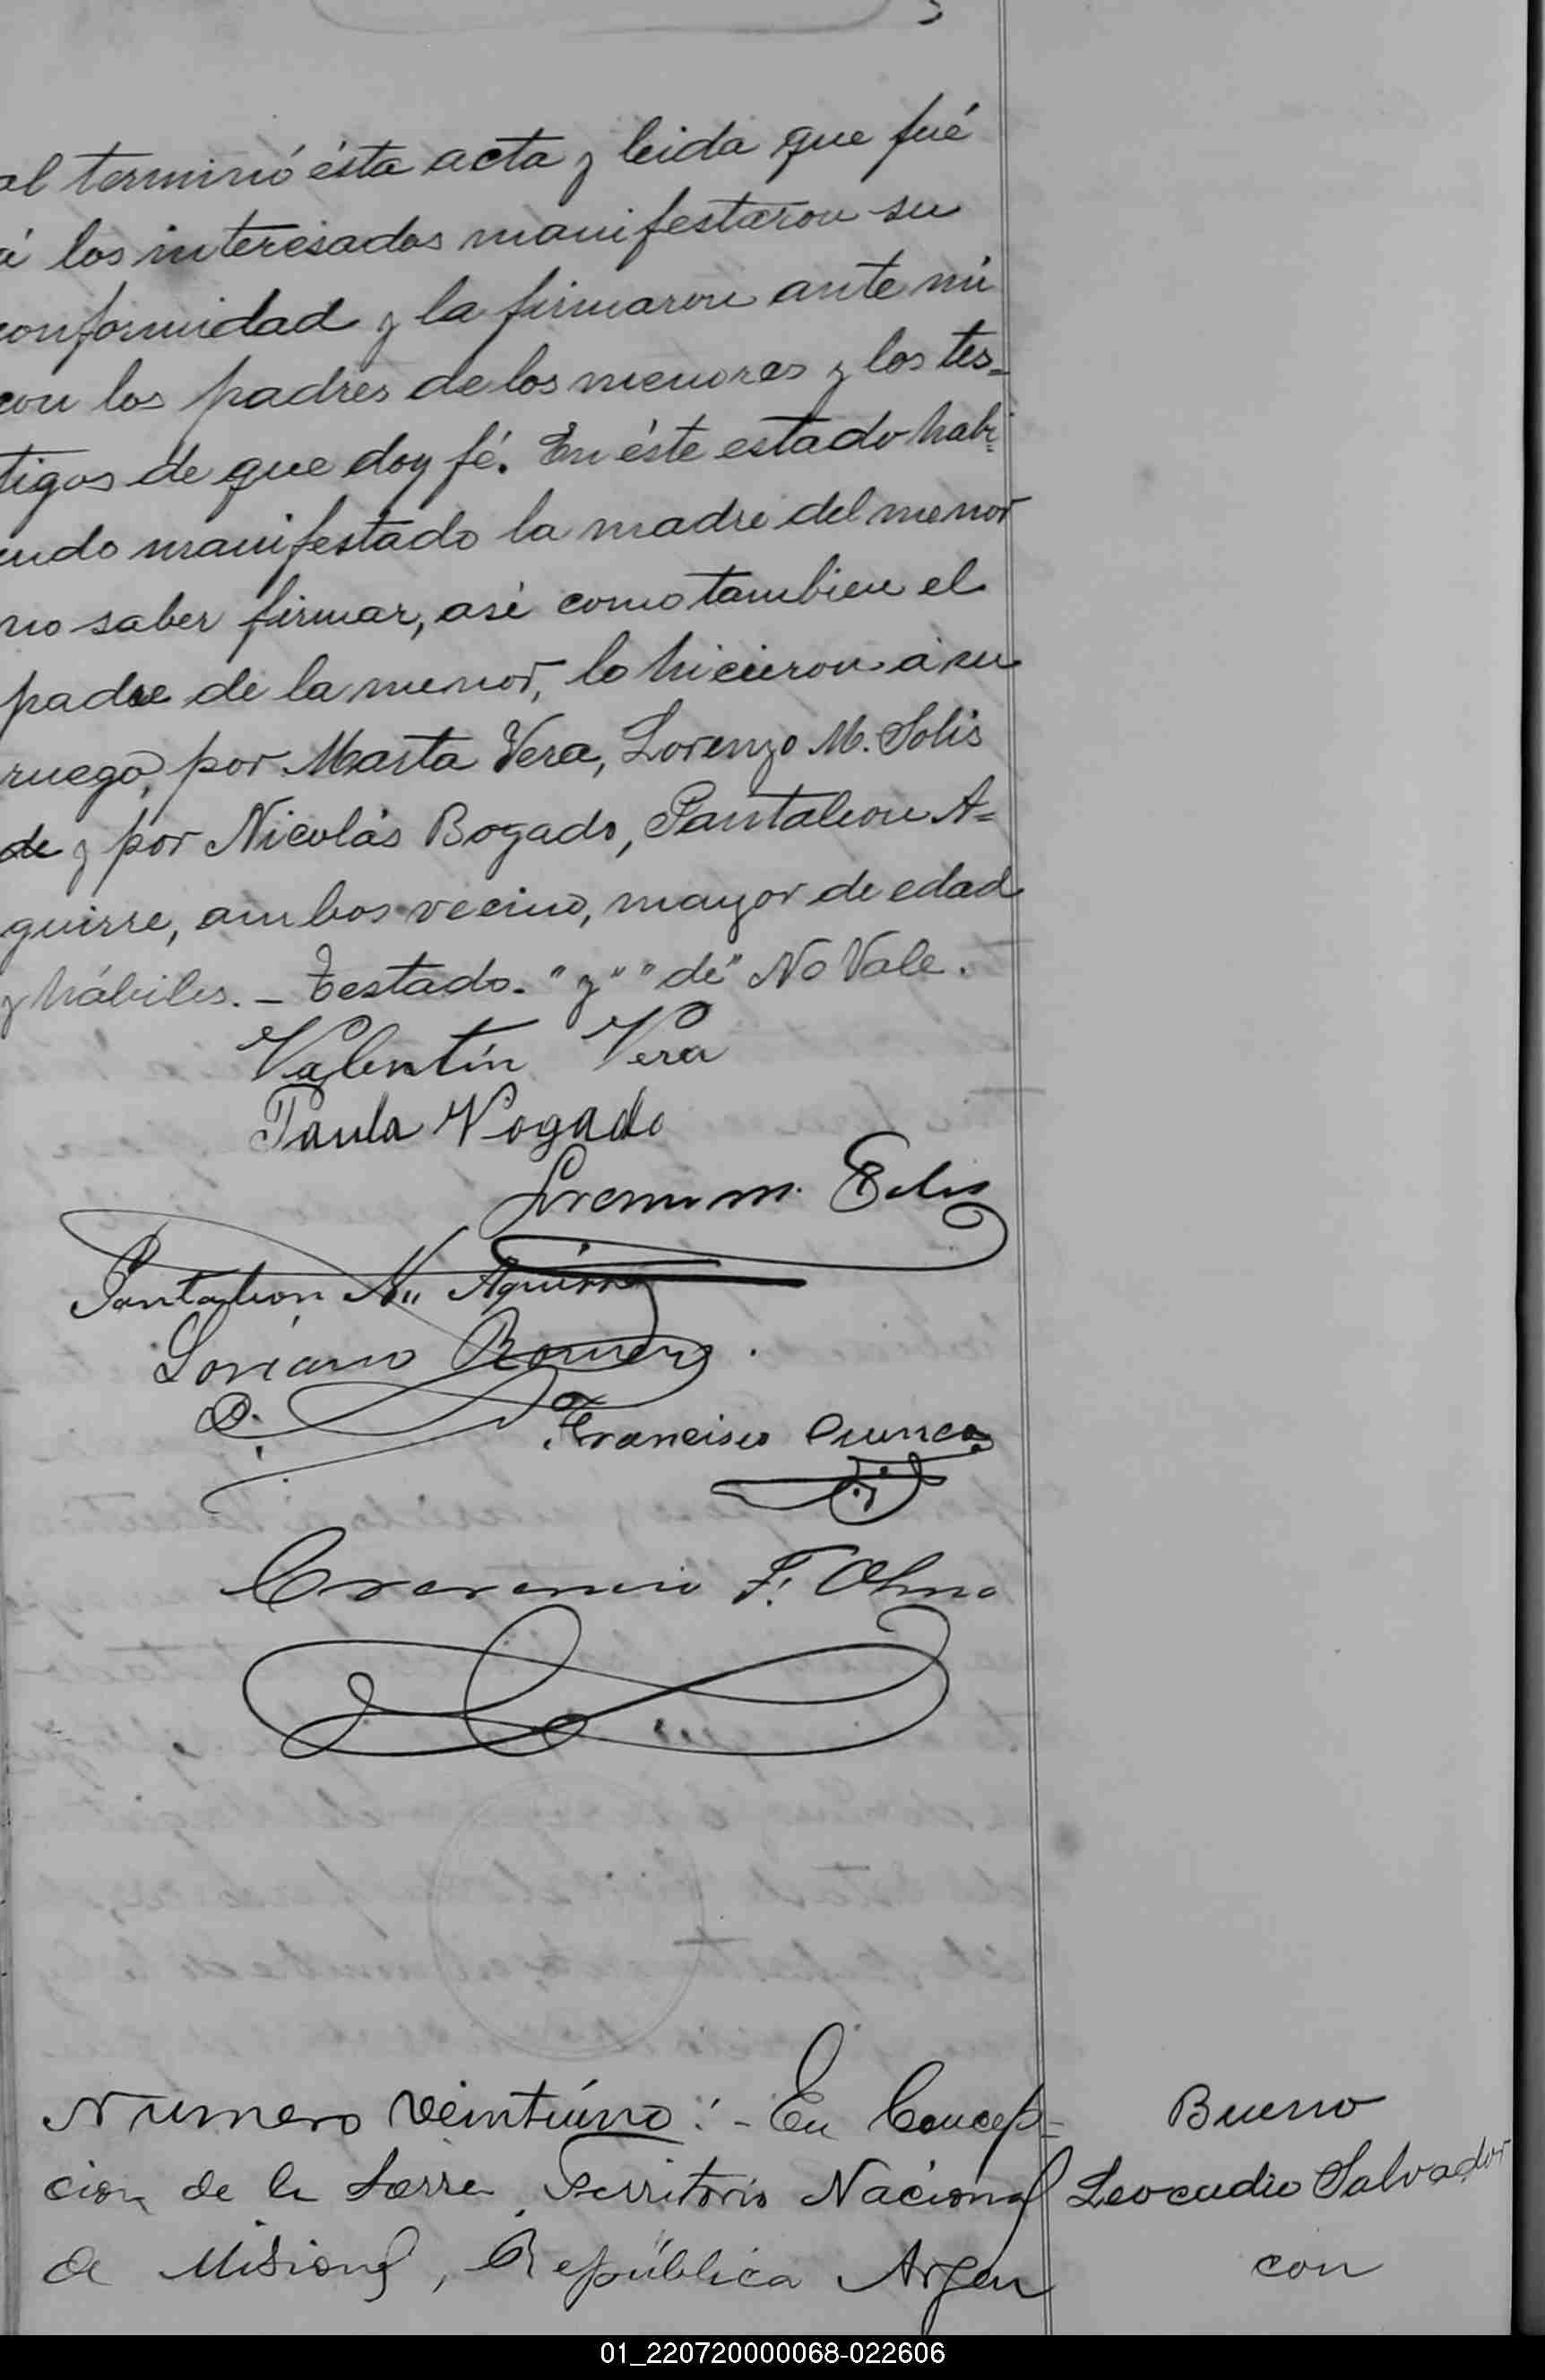 al terminó ésta acta y leida que fué
á los interesados manifestaron su
conformidad y la firmaron ante mi
con los padres de los menores y los tes=
tigos de que doy fé. En éste estado habi=
endo manifestado la madre del menor
no saber firmar, asi como tambien el
padre de la menor, lo hicieron á su
ruego, por Marta Vera, Lorenzo M. Solis
de y por Nicolás Bogado, Pantaleon A=
guirre, ambos vecino, mayor de edad
y hábiles. - Testado. "y" "de" No Vale.
Valentín Vera
Paula Vogado
M. Solis
Pantaleon N. Aguirre
Romero
Francisco
F. Olmo
Numero veintiúno: - En Concep-
cion de la Sierra Territorio Nacional
de Misiones, República Argen
Bueno
Leocadio Salvador
con
01_220720000068-022606